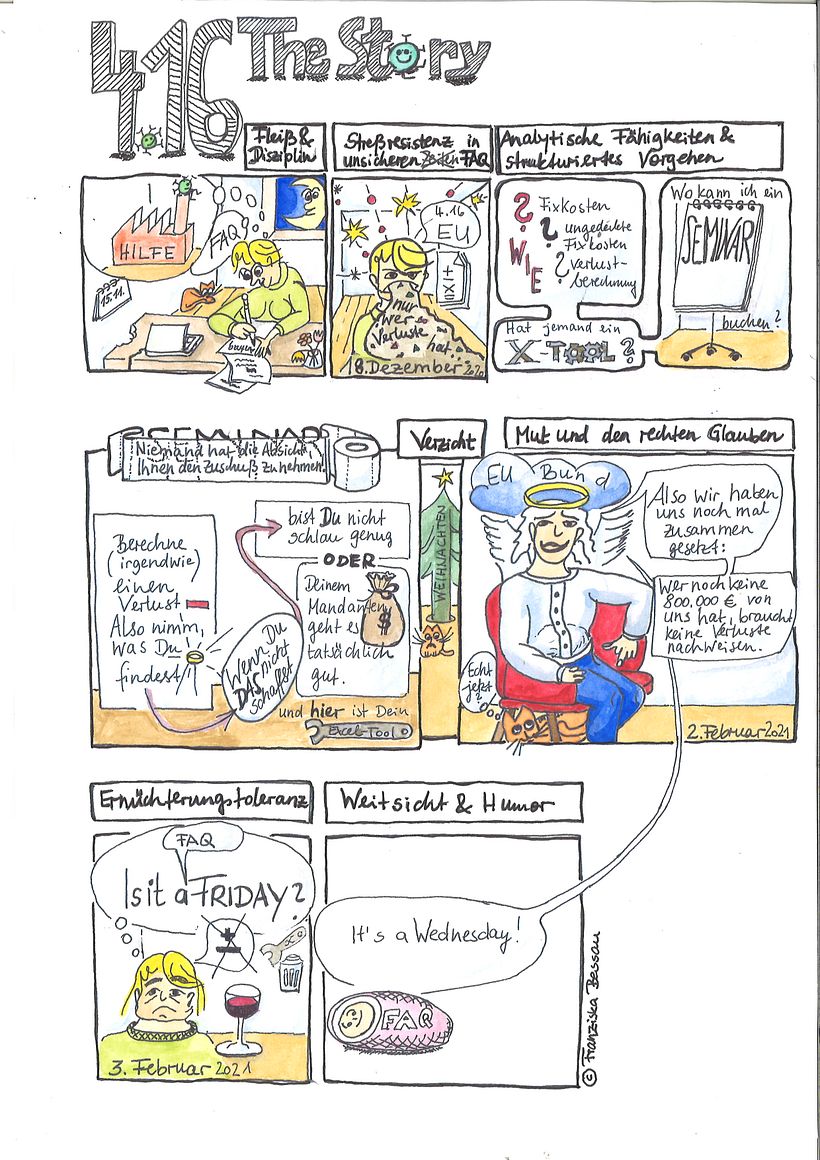 4.16 The Story
Fleiß &
Disziplin
HILFE
FAQ!
15.11.
Streßresistenz in
unsicheren Zeiten FAQ
4.16
EU
nur
wer
Verluste
hat...
18. Dezember 2020
Analytische Fähigkeiten &
strukturiertes Vorgehen
? Fixkosten
? ungedeckte
Fixkosten
WIE
? Verlust-
berechnung
Hat jemand ein
X-TOOL?
Wo kann ich ein
SEMINAR
buchen?
SEMINAR
Niemand hat die Absicht,
Ihnen den Zuschuß zu nehmen.
Berechne
(irgendwie)
einen
Verlust
Also nimm,
was Du
findest!!
Wenn Du
DAS nicht
schaffst
bist Du nicht
schlau genug
ODER
Deinem
Mandanten
geht es
tatsächlich
gut.
$
und hier ist Dein
Excel-Tool
Verzicht
WEIHNACHTEN
Mut und den rechten Glauben
EU Bund
Also wir haben
uns noch mal
zusammen
gesetzt:
Wer noch keine
800.000 € von
uns hat, braucht
keine Verluste
nachweisen.
Echt
jetzt?
2. Februar 2021
Ernüchterungstoleranz
FAQ
Is it a FRIDAY?
3. Februar 2021
Weitsicht & Humor
It's a Wednesday!
FAQ
© Franziska Bessau